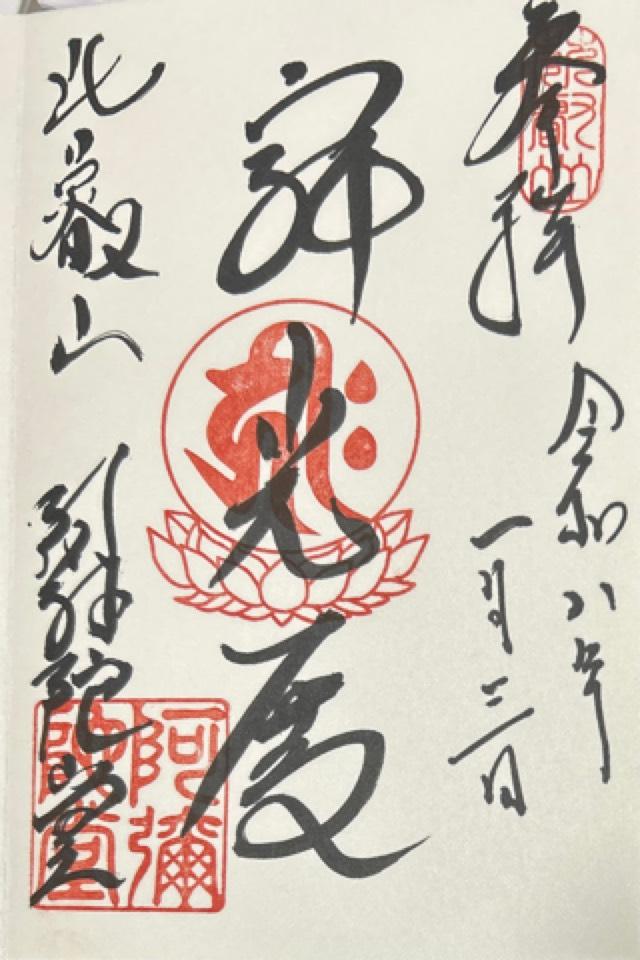 比叡山
参拝
令和八年
一月三日
光
比叡山
阿弥陀堂
阿彌
陀堂